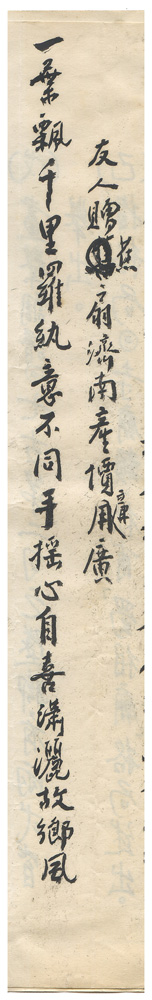 友人贈蕉扇濟南產價廉用廣
一葉飄千里羅紈意不同手搖心自喜瀟灑故鄉風